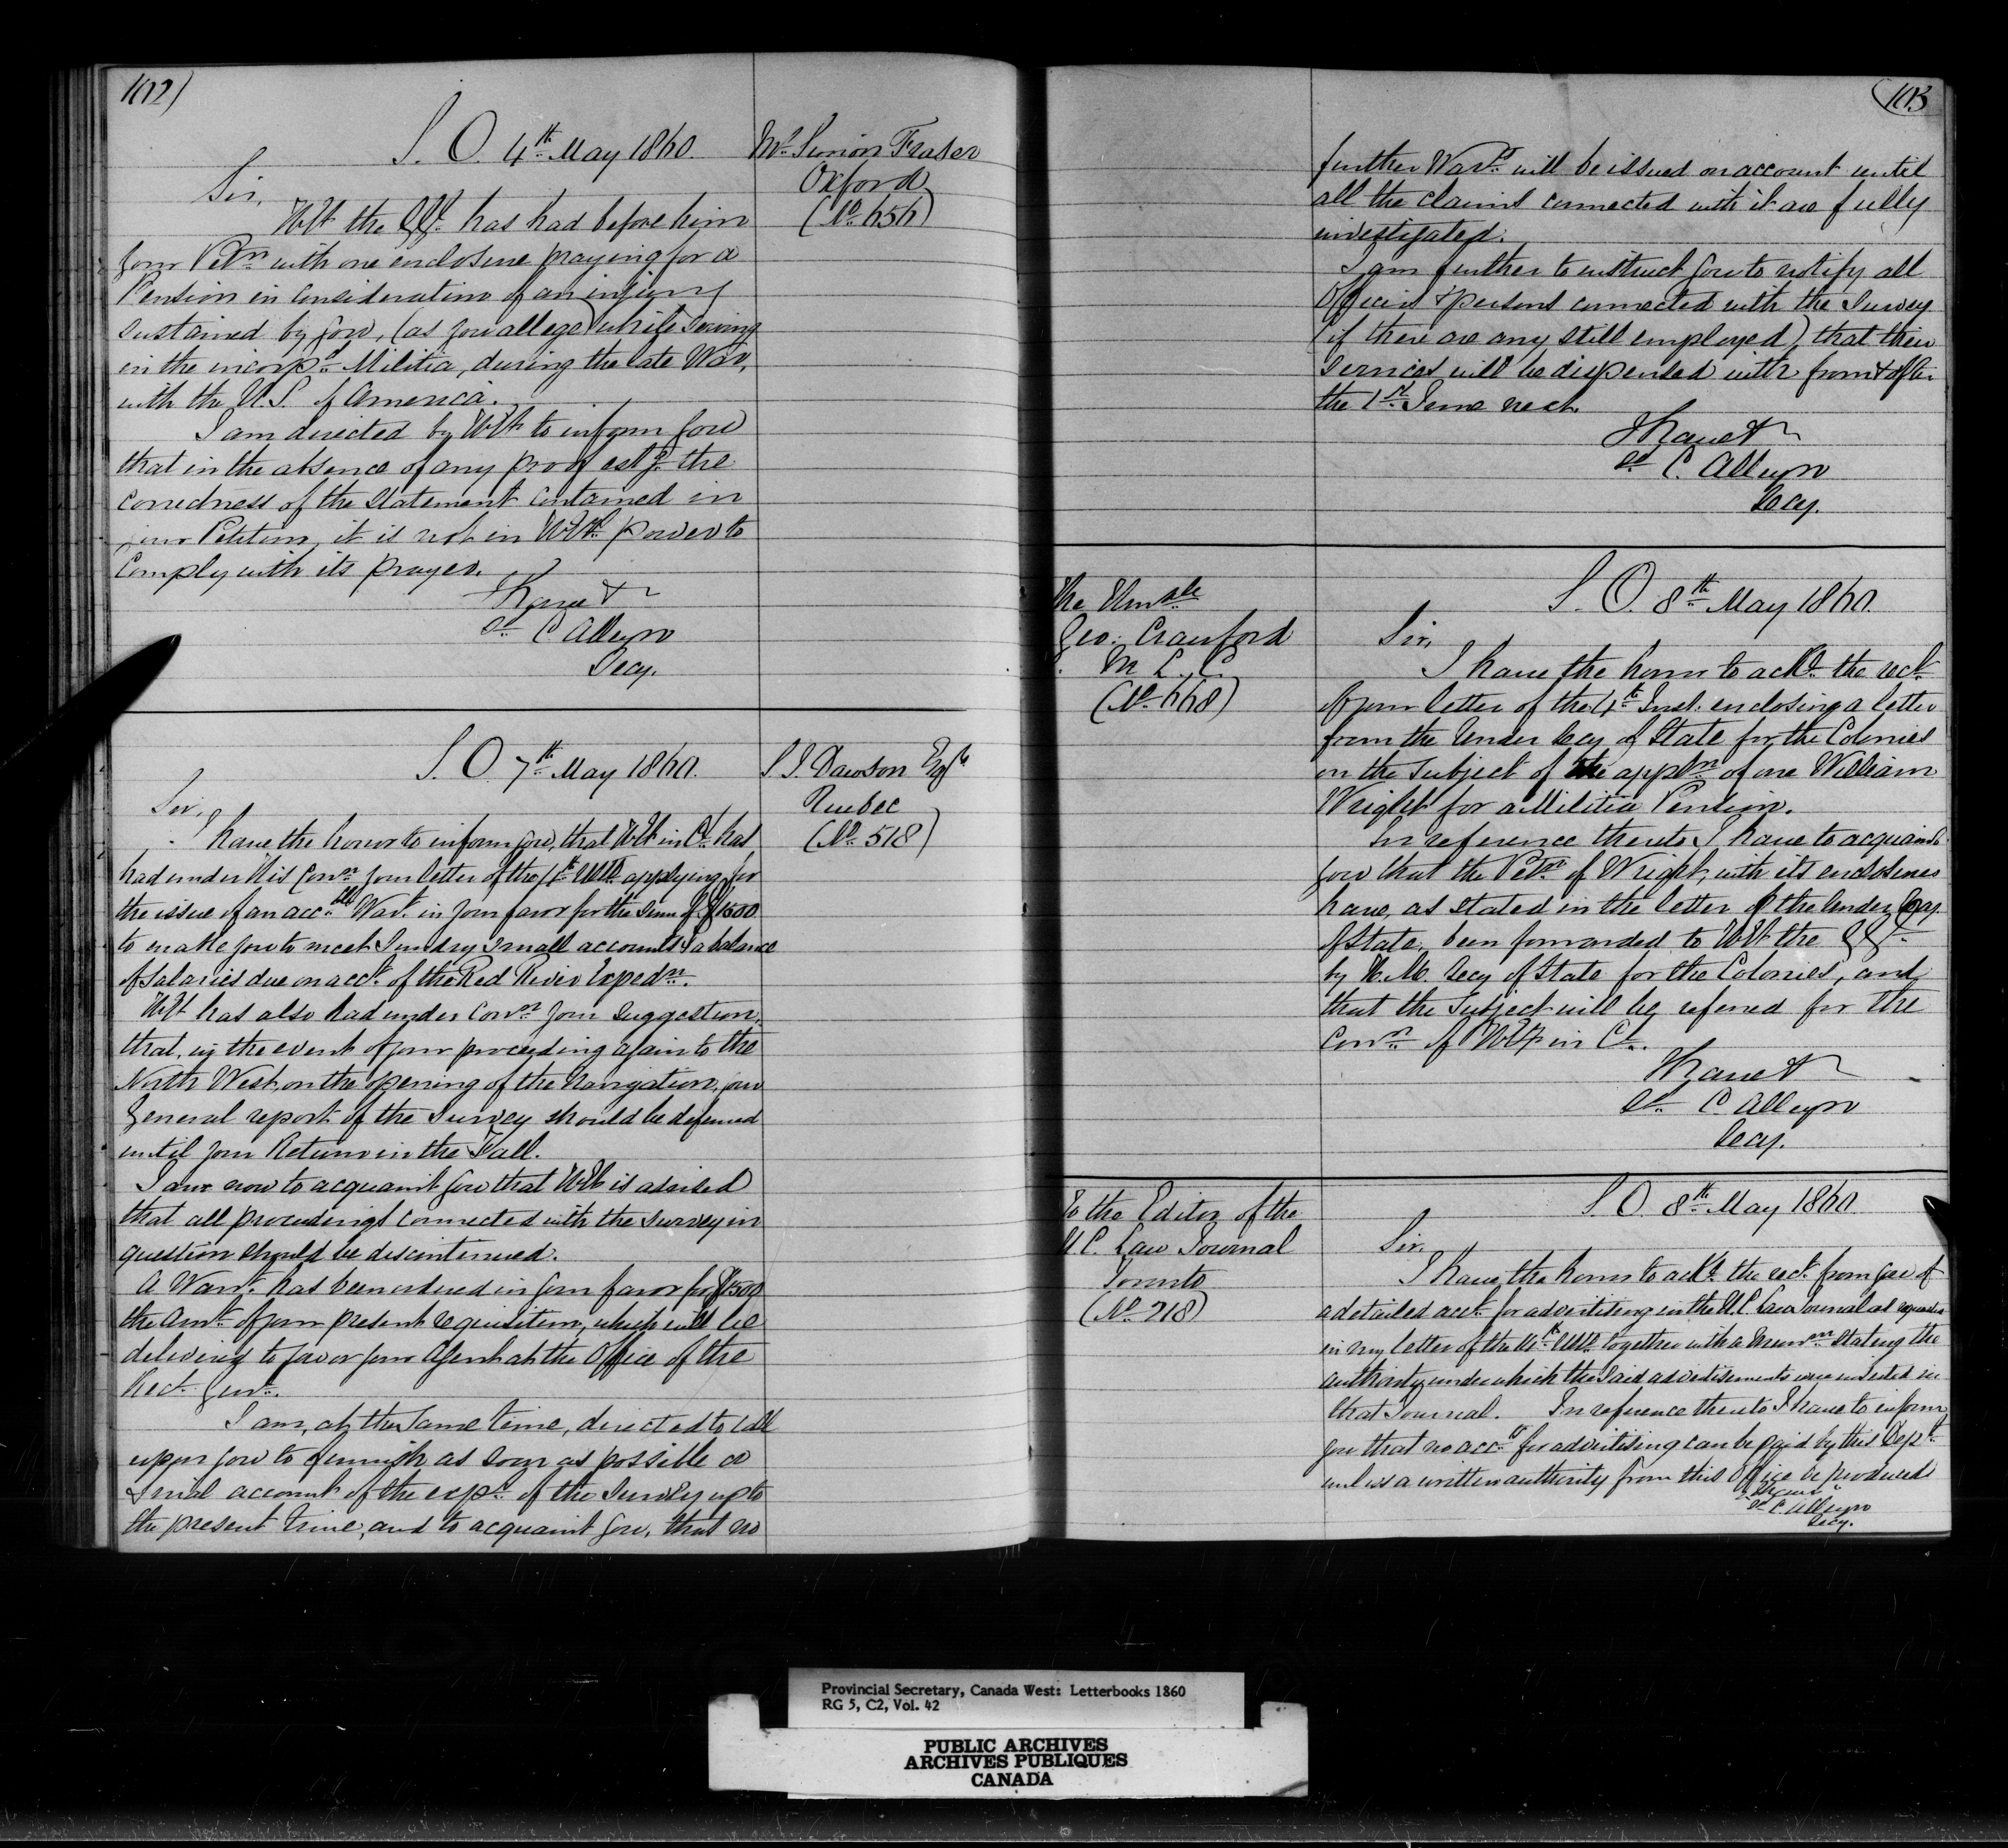 102)
S. O. 4th May 1860.
Mr Simon Fraser
Oxford
(No 656)
Sir,
H E the G G. has had before him
your Petn with one enclosure praying for a
Pension in consideration of an injury
sustained by you, (as you allege) while serving
in the incorpd Militia, during the late War,
with the U. S. of America.
I am directed by H E to inform you
that in the absence of any proof estg the
correctness of the Statement contained in
your Petition, it is not in H E's power to
comply with its prayer.
I have &
sd C Alleyn
Secy.
S. O. 7th May 1860.
S J. Dawson Esqr
Quebec
(No 518)
Sir,
I have the honor to inform you, that H E in Cl. has
had under His Conn your letter of the 4th Ulto applying for
the issue of an accble Wart. in your favor for the Sum of $1500
to enable you to meet Sundry small accounts & a balance
of salaries due on acct. of the Red River Expedn.
H E has also had under Conn your Suggestion,
that, in the event of your proceeding again to the
North West, on the opening of the navigation, your
General report of the Survey should be deferred
until your Return in the Fall.
I am now to acquaint you that H E is advised
that all proceedings connected with the survey in
question should be discontinued.
A Warrt. has been ordered in your favor for $1500
the amt. of your present requisition, which will be
delivered to you or your Agent at the Office of the
Rect. Genl.
I am, at the same time, directed to call
upon you to furnish as soon as possible a
final account of the expse of the Survey up to
the present time, and to acquaint you, that no
103
further Warrt. will be issued on account until
all the claims connected with it are fully
investigated.
I am further to instruct you to notify all
Officers & persons connected with the Survey
(if there are any still employed) that their
services will be dispensed with from & after
the 1st June next.
I have &
sd C. Alleyn
Secy.
The Honble
Geo. Crawford
M. L. C.
(No 668)
S. O. 8th May 1860.
Sir,
I have the honor to ackge the rect.
of your letter of the 4th Inst. enclosing a letter
from the Under Secy of State for the Colonies
on the subject of the appln of one William
Wright for a Militia Pension.
In reference thereto I have to acquaint
you that the Petn of Wright, with its enclosures
have, as stated in the letter of the Under Secy
of State, been forwarded to H E the G G.
by H. M. Secy of State for the Colonies, and
that the subject will be referred for the
Conn of H E in Cl.
I have &
sd C Alleyn
Secy.
To the Editor of the
U C. Law Journal
Toronto
(No 218)
S. O. 8th May 1860.
Sir,
I have the honor to ackge the rect. from you of
a detailed acct. for advertising in the U.C. Law Journal as requested
in my letter of the Ulto. together with a Memm stating the
authority under which the said advertisements were inserted in
that Journal. In reference thereto I have to inform
you that no acct for advertising can be paid by this Dept.
unless a written authority from this Office be produced
I have
sd C. Alleyn
Secy.
Provincial Secretary, Canada West: Letterbooks 1860
RG 5, C2, Vol. 42
PUBLIC ARCHIVES
ARCHIVES PUBLIQUES
CANADA